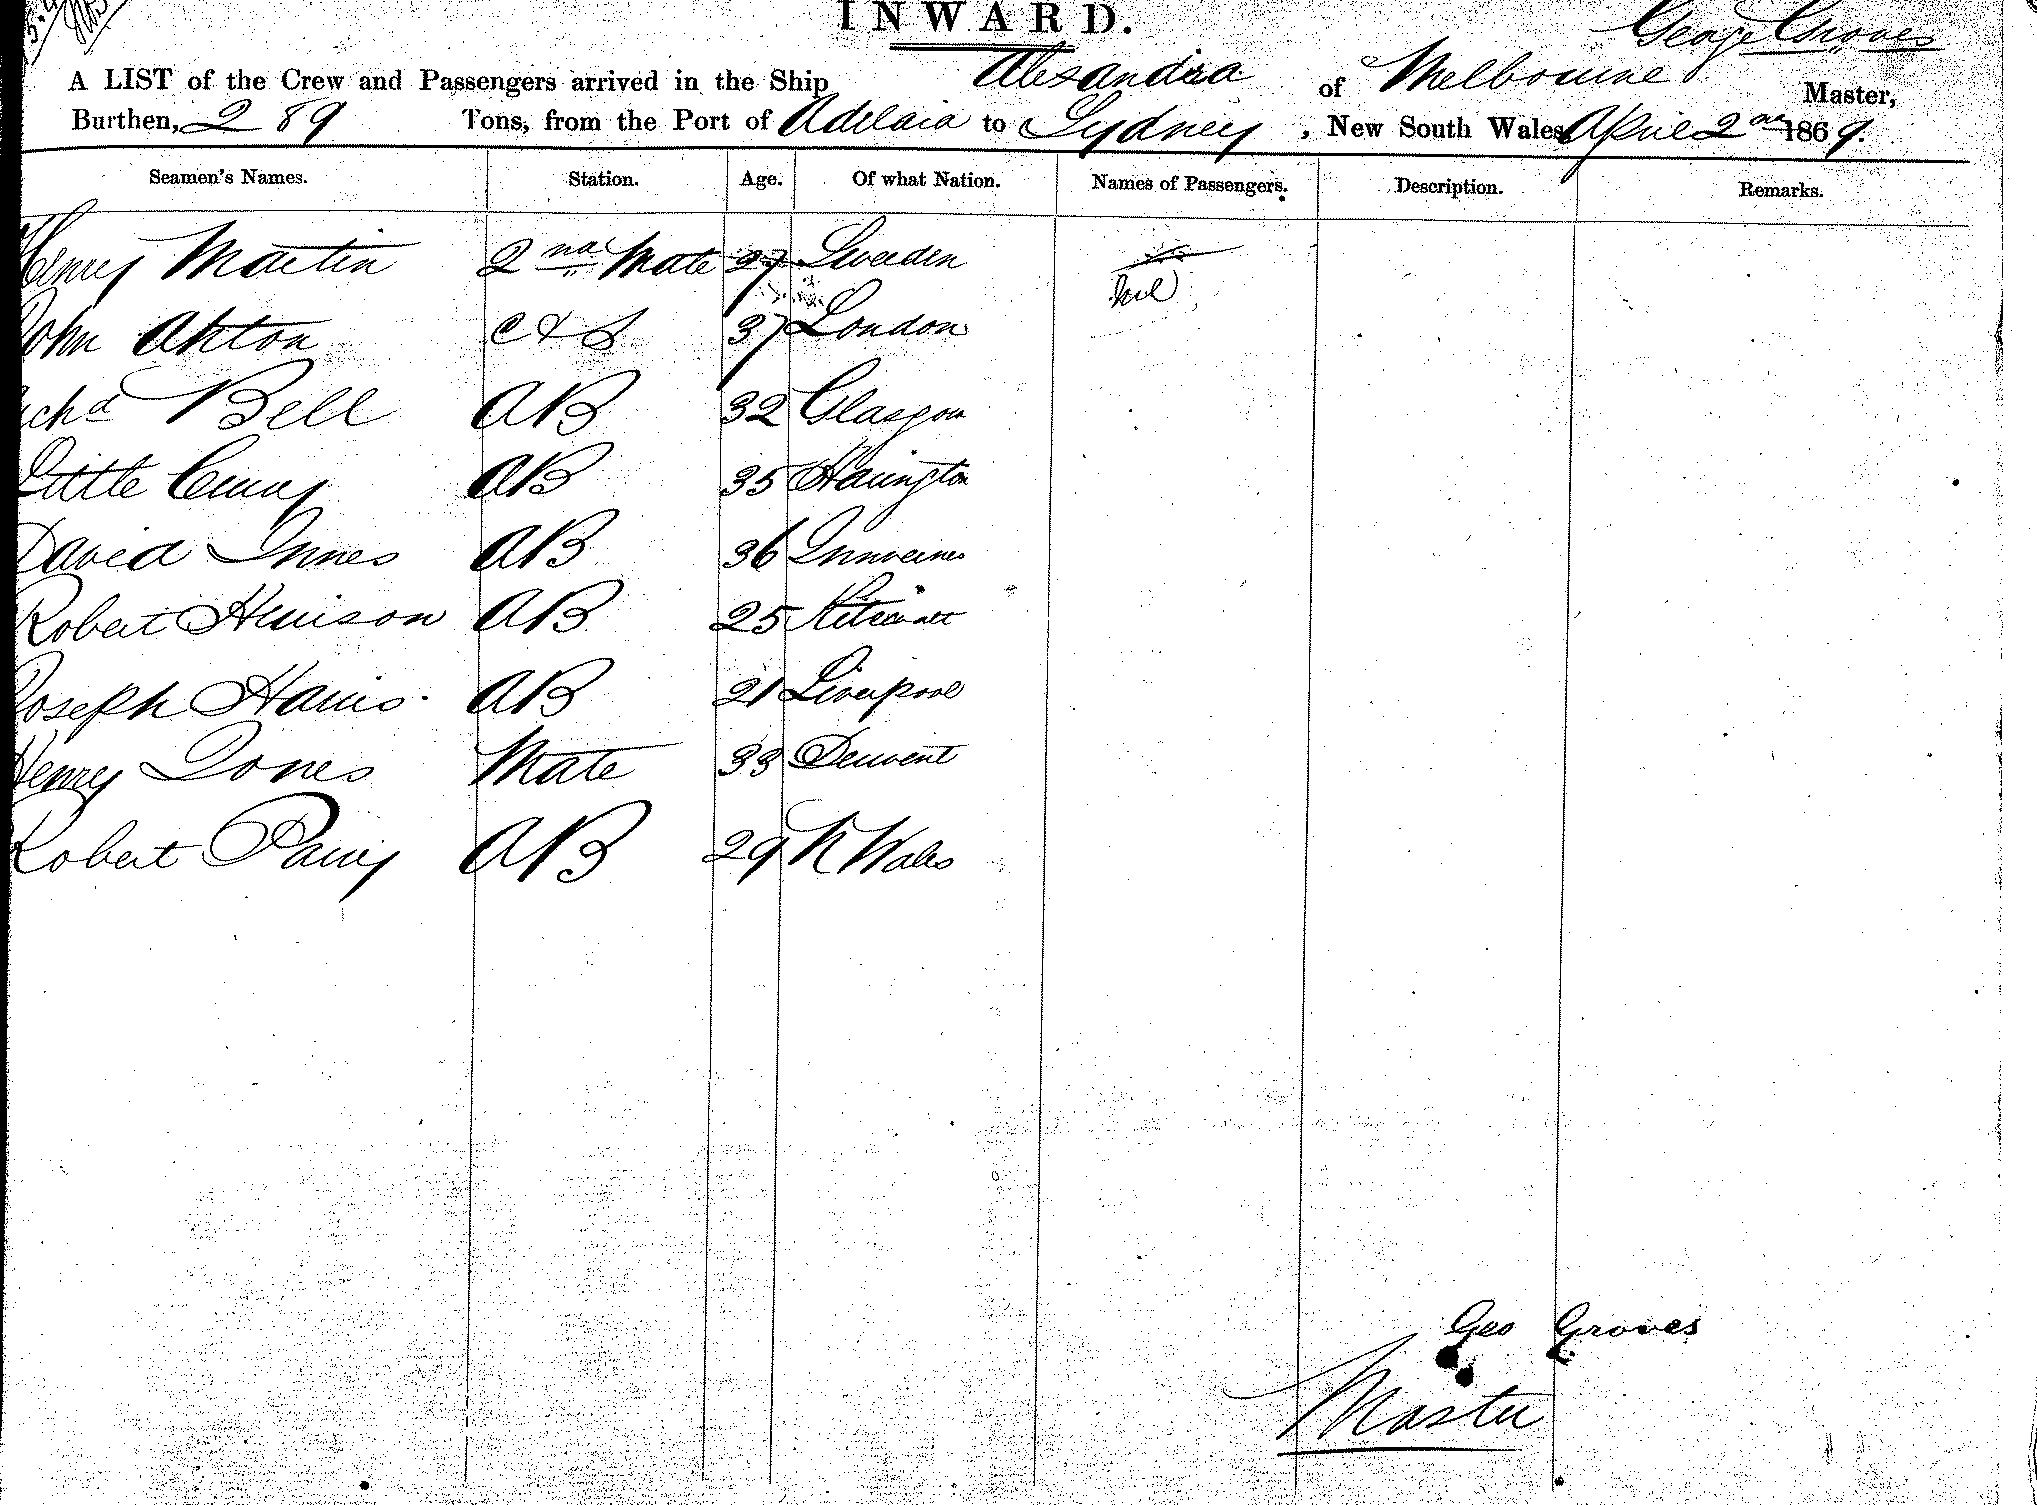 INWARD.
George Groves
A LIST of the Crew and Passengers arrived in the Ship Alexandra of Melbourne Master,
Burthen, 289 Tons, from the Port of Adelaid to Sydney, New South Wales April 2nd 1869.
Seamen's Names. Station. Age. Of what Nation. Names of Passengers. Description. Remarks.
Henry Martin 2nd Mate 27 Sweden
John Akton C & S 37 London
Richd Bell AB 32 Glasgow
Little AB 35 Harington
David Innes AB 36
Robert Hewison AB 25
Joseph Harris AB 21 Liverpool
Henry Jones Mate 33 Derwent
Robert Parry AB 29 N Wales
Geo Groves
Master